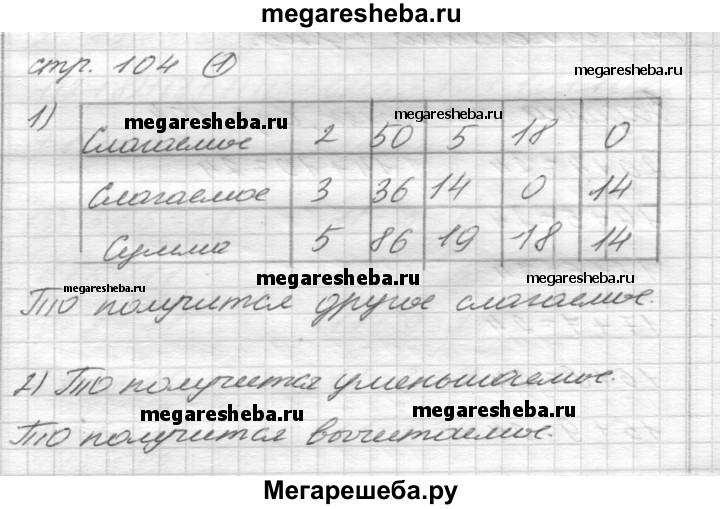 megaresheba.ru
стр. 104 1
megaresheba.ru
1)
megaresheba.ru
megaresheba.ru
Слагаемое 2 50 5 18 0
Слагаемое 3 36 14 0 14
Сумма 5 86 19 18 14
megaresheba.ru
megaresheba.ru
megaresheba.ru
То получится другое слагаемое.
2) То получится уменьшаемое.
megaresheba.ru
megaresheba.ru
То получится вычитаемое.
Мегарешеба.ру